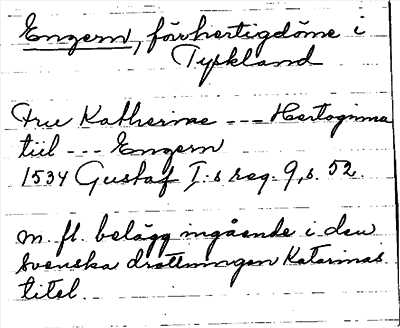 Engern, förhertigdöme i
Tyskland
Fru Katherine --- Hertoginna
tiil --- Engern
1534 Gustaf I:s reg. 9, s. 52.
m. fl. belägg ingående i den
svenska drottningen Katarinas
titel.